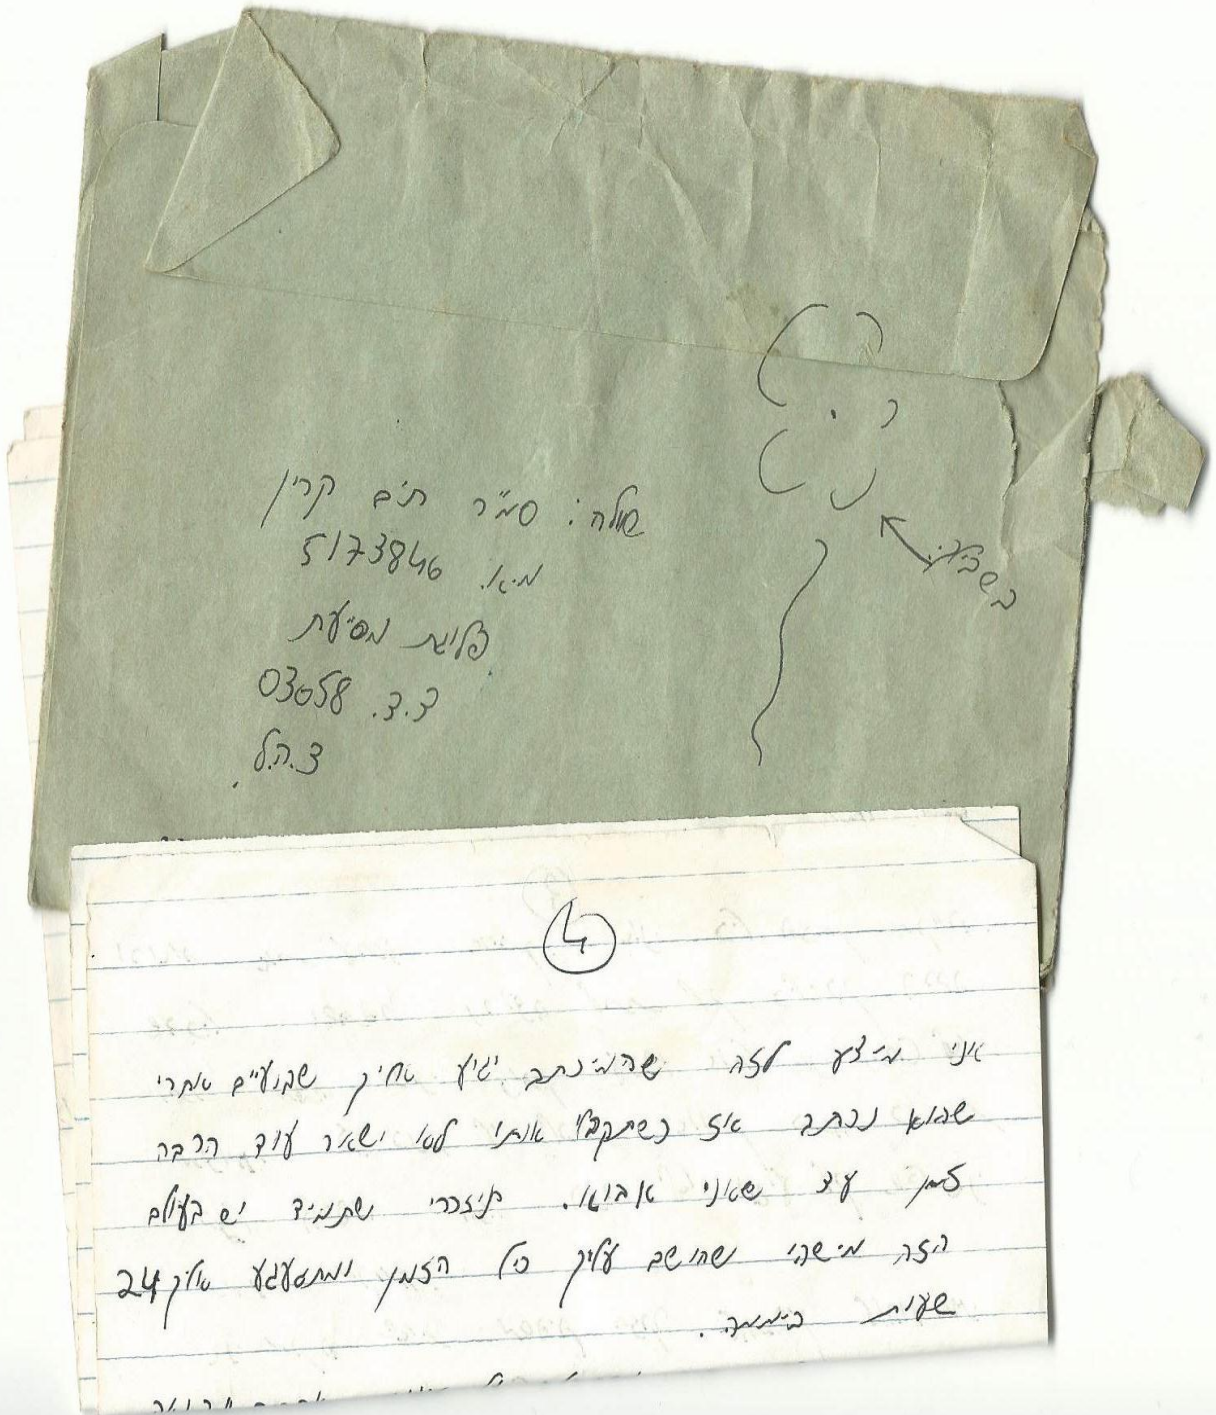 שולח: סמ"ר תים קרין
מ.א. 5173846
פלוגת מסייעת
ד.צ. 03058
צ.ה.ל
בשבילך
4
אני מודע לזה שהמיכתב יגיע אליך שבועיים אחרי
שהוא נכתב אז כשתקבלי אותו לא ישאר עוד הרבה
זמן עד שאני אבוא. תיזכרי שתמיד יש בעולם
הזה מישהו שחושב עליך כל הזמן ומתגעגע אליך 24
שעות ביממה.